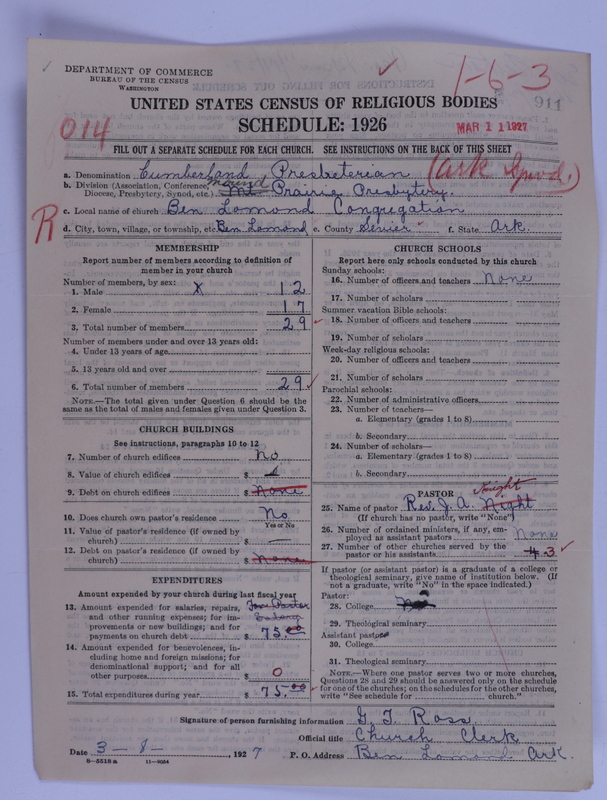 DEPARTMENT OF COMMERCE
BUREAU OF THE CENSUS
WASHINGTON
1-6-3
911
UNITED STATES CENSUS OF RELIGIOUS BODIES
SCHEDULE: 1926
MAR 11 1927
014
FILL OUT A SEPARATE SCHEDULE FOR EACH CHURCH. SEE INSTRUCTIONS ON THE BACK OF THIS SHEET
a. Denomination Cumberland Presbeterian (Ark Synod.)
b. Division (Association, Conference,
Diocese, Presbytery, Synod, etc.) Mt Prairie Presbytery.
c. Local name of church Ben Lomond Congregation
R
d. City, town, village, or township, etc. Ben Lomond e. County Sevier f. State Ark.
MEMBERSHIP
Report number of members according to definition of
member in your church
Number of members, by sex: X
1. Male 12
2. Female 17
3. Total number of members 29
Number of members under and over 13 years old:
4. Under 13 years of age
5. 13 years old and over
6. Total number of members 29
NOTE.—The total given under Question 6 should be the
same as the total of males and females given under Question 3.
CHURCH BUILDINGS
See instructions, paragraphs 10 to 12
7. Number of church edifices No
8. Value of church edifices $
9. Debt on church edifices $ None
10. Does church own pastor's residence No
Yes or No
11. Value of pastor's residence (if owned by
church) $
12. Debt on pastor's residence (if owned by
church) $ None
EXPENDITURES
Amount expended by your church during last fiscal year
13. Amount expended for salaries, repairs, For Pastor
and other running expenses; for im- Salary
provements or new buildings; and for
payments on church debt $ 75.00
14. Amount expended for benevolences, in-
cluding home and foreign missions; for
denominational support; and for all
other purposes $ 0
15. Total expenditures during year $ 75.00
CHURCH SCHOOLS
Report here only schools conducted by this church
Sunday schools:
16. Number of officers and teachers None
17. Number of scholars
Summer vacation Bible schools:
18. Number of officers and teachers
19. Number of scholars
Week-day religious schools:
20. Number of officers and teachers
21. Number of scholars
Parochial schools:
22. Number of administrative officers
23. Number of teachers—
a. Elementary (grades 1 to 8)
b. Secondary
24. Number of scholars—
a. Elementary (grades 1 to 8)
b. Secondary
PASTOR Knight
25. Name of pastor Rev. J. A. Night
(If church has no pastor, write "None")
26. Number of ordained ministers, if any, em-
ployed as assistant pastors None
27. Number of other churches served by the
pastor or his assistants 4 3
If pastor (or assistant pastor) is a graduate of a college or
theological seminary, give name of institution below. (If
not a graduate, write "No" in the space indicated.)
Pastor:
28. College No
29. Theological seminary
Assistant pastor:
30. College
31. Theological seminary
NOTE.—Where one pastor serves two or more churches,
Questions 28 and 29 should be answered only on the schedule
for one of the churches; on the schedules for the other churches,
write "See schedule for church."
Signature of person furnishing information G. T. Ross
Official title Church Clerk
Date 3-8-, 1927 P. O. Address Ben Lomond Ark.
8-5518a 11-9054